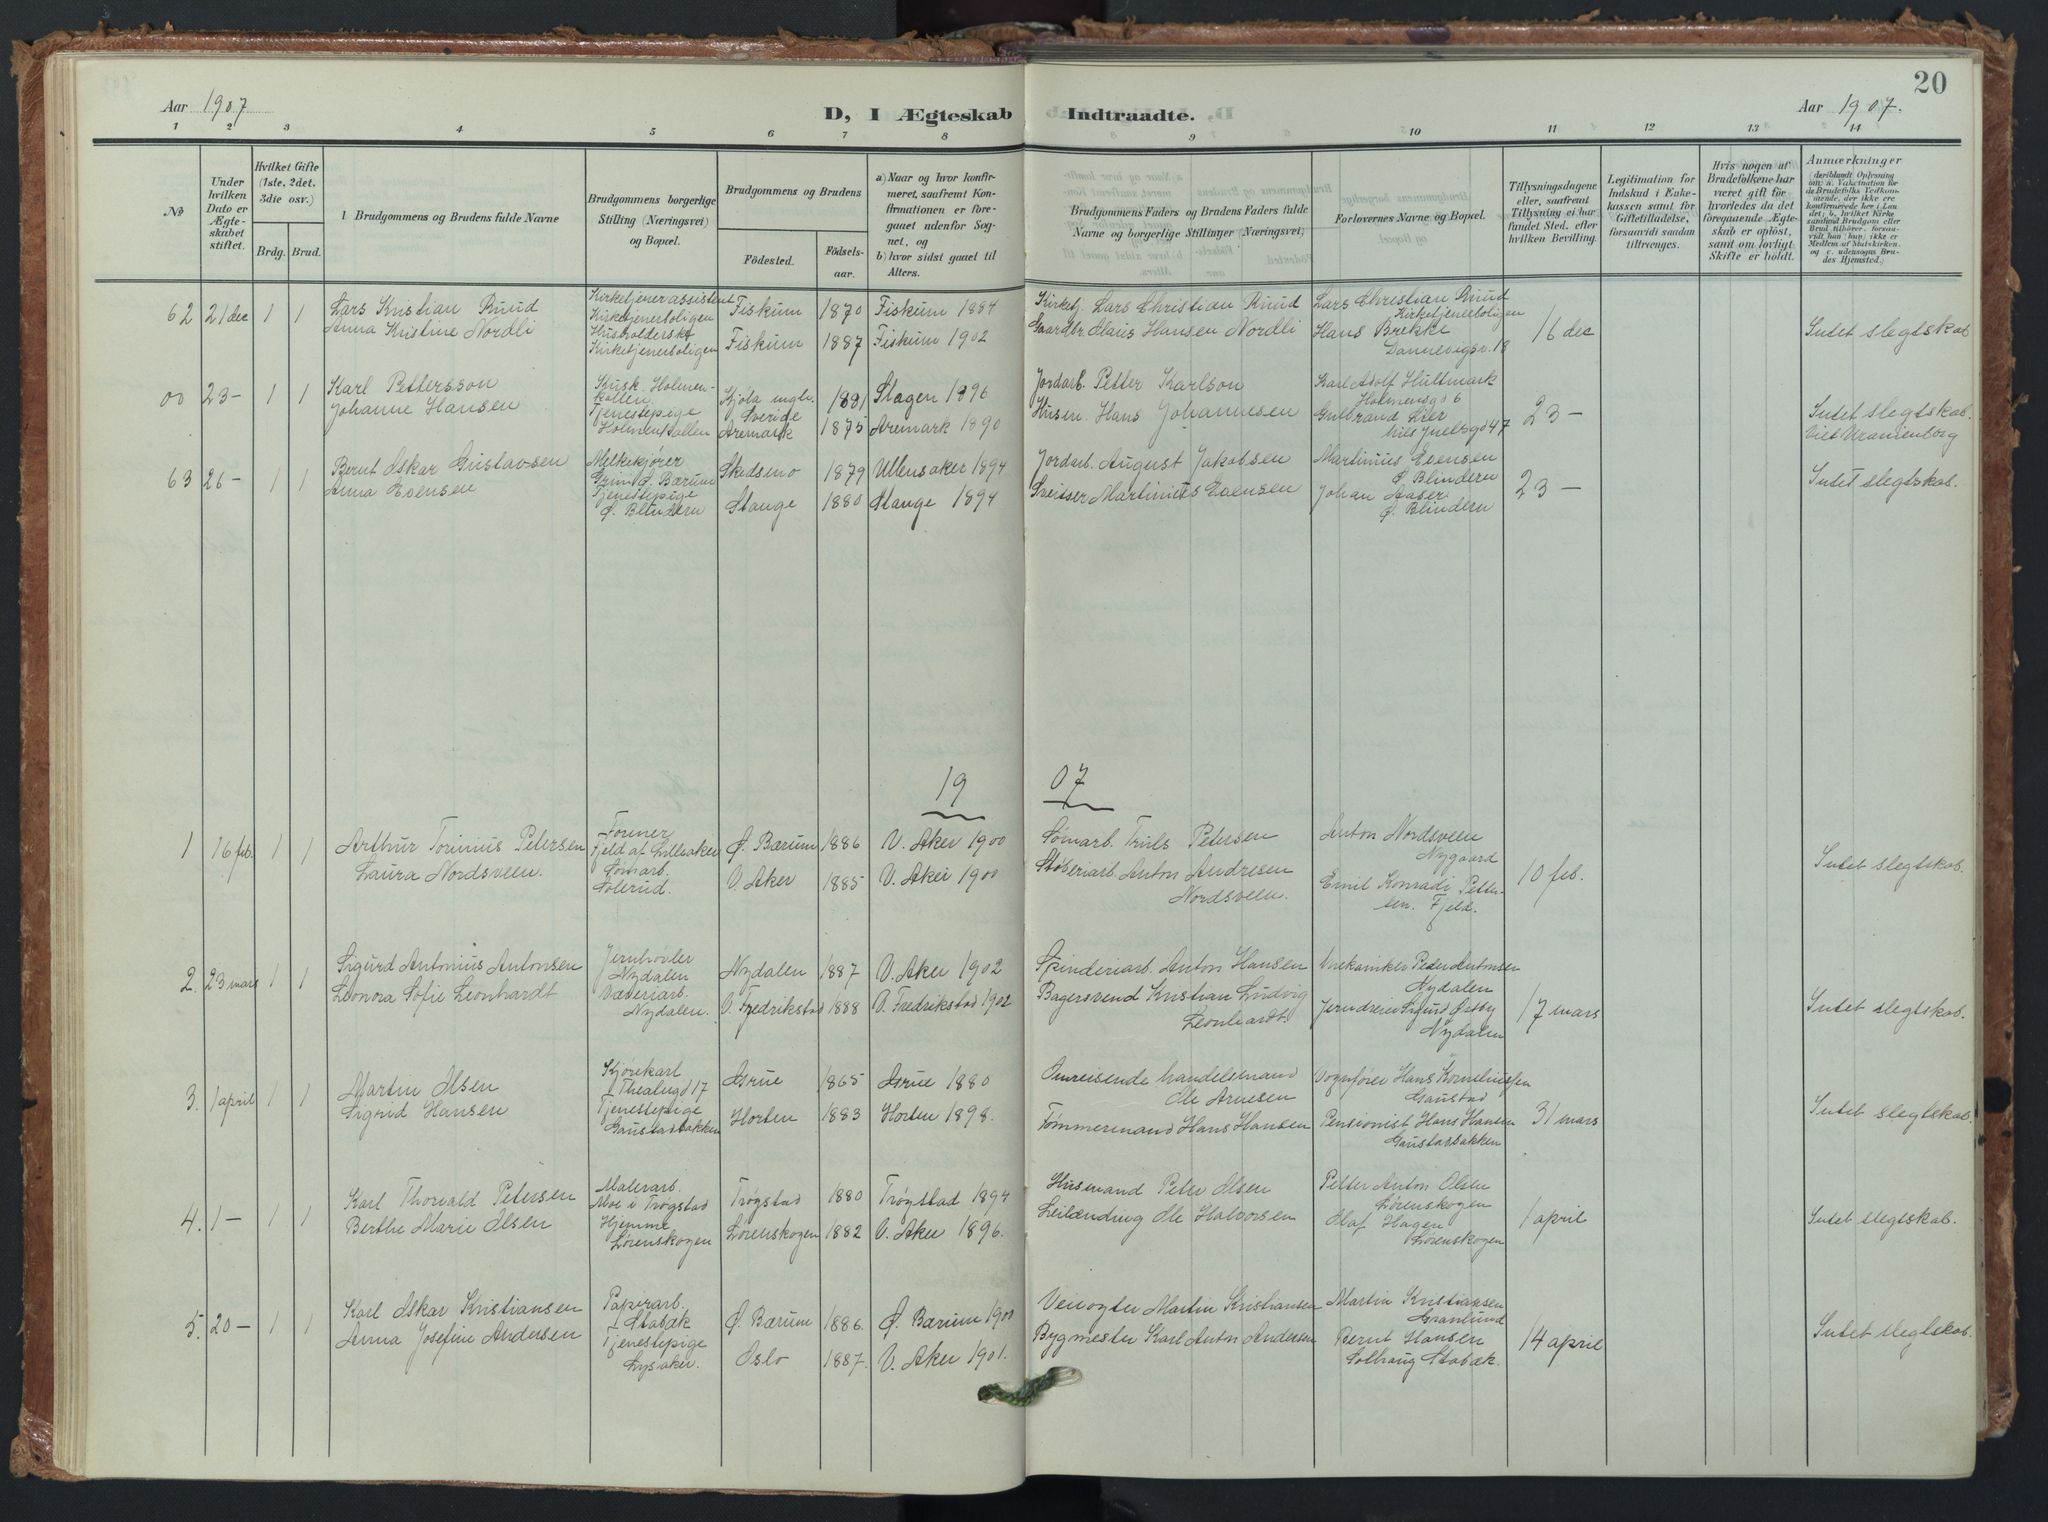 20
Aar 1907
D, I Ægteskab Indtraadte.
Aar 1907.
1 2 3 4 5 6 7 8 9 10 11 12 13 14
No
Under hvilken Dato er Ægteskabet stiftet.
Hvilket Gifte (1ste, 2det, 3die osv.)
Brdg. Brud.
Brudgommens og Brudens fulde Navne
Brudgommens borgerlige Stilling (Næringsvei) og Bopæl.
Brudgommens og Brudens
Fødested. Fødselsaar.
a) Naar og hvor konfirmeret, saafremt Konfirmationen er foregaaet udenfor Sognet, og
b) hvor sidst gaaet til Alters.
Brudgommens Faders og Brudens Faders fulde Navne og borgerlige Stillinger (Næringsvei)
Forlovernes Navne og Bopæl.
Tillysningsdagene eller, saafremt Tillysning ei har fundet Sted, efter hvilken Bevilling.
Legitimation for Indskud i Enkekassen samt for Giftetilladelse, forsaavidt saadan tiltrænges.
Hvis nogen af Brudefolkene har været gift før, hvorledes da det foregaaende Ægteskab er opløst, samt om lovligt Skifte er holdt.
Anmærkninger
(deriblandt Oplysning om: a. Vakcination for de Brudefolks Vedkommende, der ikke ere konfirmerede her i Landet; b. hvilket Kirkesamfund Brudgom eller Brud tilhører, forsaavidt han (hun) ikke er Medlem af Statskirken, og c. udensogns Brudes Hjemsted.)
62 21 dec 1 1 Lars Kristian Ruud Kirketjenerassistent Kirketjenerboligen Fiskum 1870 Fiskum 1884 Kirketj. Lars Christian Ruud Lars Christian Ruud Kirketjenerboligen 16 dec Intet slegtskab
Anna Kristine Nordli Husholderske Kirketjenerboligen Fiskum 1887 Fiskum 1902 Gaardbr. Hansen Nordli Hans Brekke Dannevigsv. 18
00 23 - 1 1 Karl Pettersson Kusk Holmenkollen Sverige 1881 1896 Jordarb. Petter Karlson Karl Adolf Hultmark Holmensgd 6 23 - Intet slegtskab.
Johanne Hansen Tjenestepige Holmenkollen Aremark 1875 Aremark 1890 Husm. Hans Johannesen Gulbrand Lier Nils Juelsgd 47 Viet Uranienborg
63 26 - 1 1 Bernt Oskar Gustavsen Melkekjører Grini Ø. Bærum Skedsmo 1879 Ullensaker 1894 Jordarb. August Jakobsen Martinius Evensen Ø. Blindern 23 - Intet slegtskab.
Anna Evensen Tjenestepige Ø. Blindern Stange 1880 Stange 1894 Sveitser Martinius Evensen Johan Aaser Ø. Blindern
19 07
1 16 feb. 1 1 Arthur Torinius Petersen Former Fjeld af Lilleaker Ø. Bærum 1886 V. Aker 1900 Sømarb. Truls Petersen Anton Nordsveen Nygaard 10 feb. Intet slegtskab.
Laura Nordsveen. Sømarb. Solerud. V. Aker 1885 V. Aker 1900 Støberiarb. Anton Andresen Nordsveen. Emil Konradi Pettersen. Fjeld.
2. 23 mars 1 1 Sigurd Antonius Antonsen Jernhøvler Nydalen Nydalen 1887 V. Aker 1902 Spinderiarb. Anton Hansen Peder Antonsen Nydalen 17 mars Intet slegtskab.
Leonora Sofie Leonhardt Væveriarb. Nydalen. V. Fredrikstad 1888 V. Fredrikstad 1902 Bagersvend Kristian Ludvig Leonhardt. Jerndreier Sigurd Østby Nydalen
3. 1 april 1 1 Martin Olsen Kjørekarl Theatergd 17 1865 1880 Omreisende handelsmand Ole Arnesen Vognfører Hans Korneliussen Gaustad 31 mars Intet slegtskab.
Sigrid Hansen Tjenestepige Gaustadbakken Horten 1883 Horten 1898. Tømmermand Hans Hansen Pensionist Hans Hansen Gaustadbakken
4. 1 - 1 1 Karl Thorvald Petersen Malerarb. Moe i Trøgstad Trøgstad 1880 Trøgstad 1894 Husmand Peter Olsen Petter Anton Olsen Lørenskogen 1 april Intet slegtskab.
Berthe Marie Olsen Hjemme Lørenskogen Lørenskogen 1882 V. Aker 1896. Leilænding Ole Halvorsen Olaf Hagen Lørenskogen
5. 20 - 1 1 Karl Oskar Kristiansen Papirarb. Stabæk Ø. Bærum 1886. Ø. Bærum 1900 Veivogter Martin Kristiansen Martin Kristiansen Granlund 14 april Intet slegtskab.
Anna Josefine Andersen Tjenestepige Lysaker. Oslo 1887. V. Aker 1901. Bygmester Karl Anton Andersen Bernt Hansen Solhaug Stabæk.